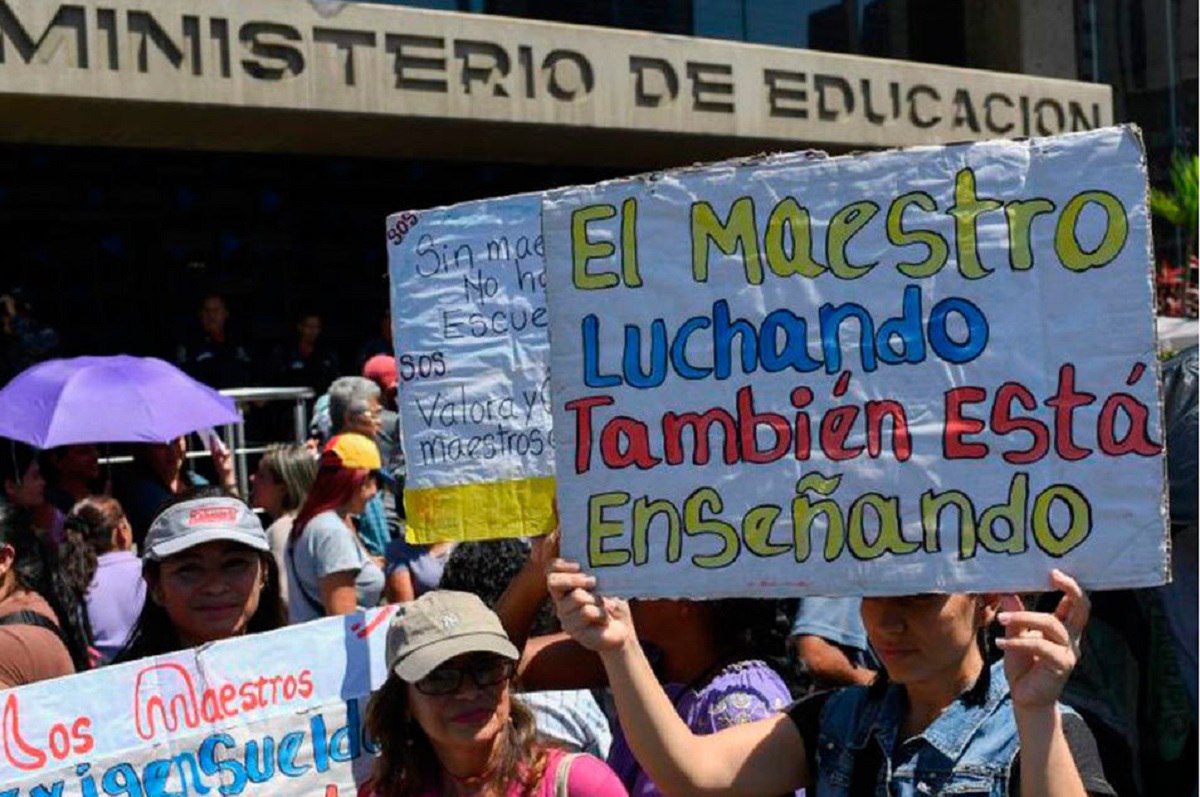 MINISTERIO DE EDUCACION
SOS
Sin
No
SOS
Valora y
maestros
El Maestro
Luchando
También Está
Enseñando
Los Maestros
Exigen Sueldo